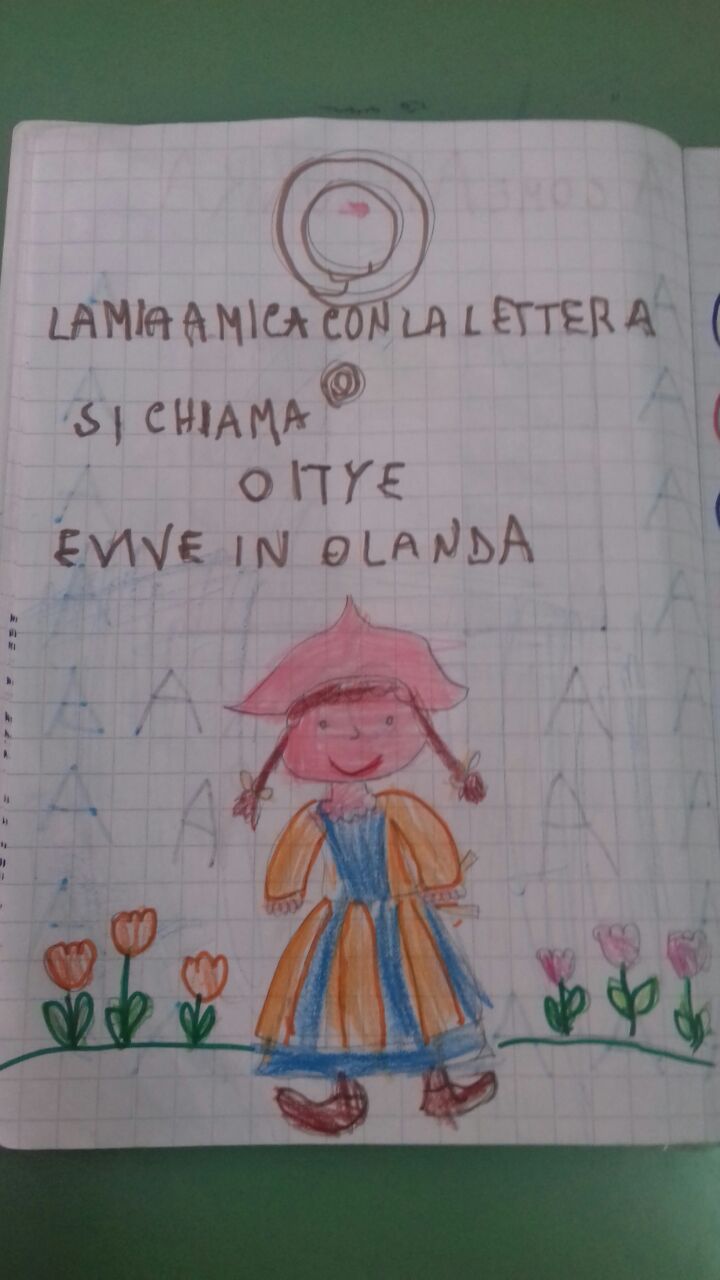 O
LA MIA AMICA CON LA LETTERA
O
SI CHIAMA
OITYE
E VIVE IN OLANDA
A A
A A
A A
A A A A
A A A A